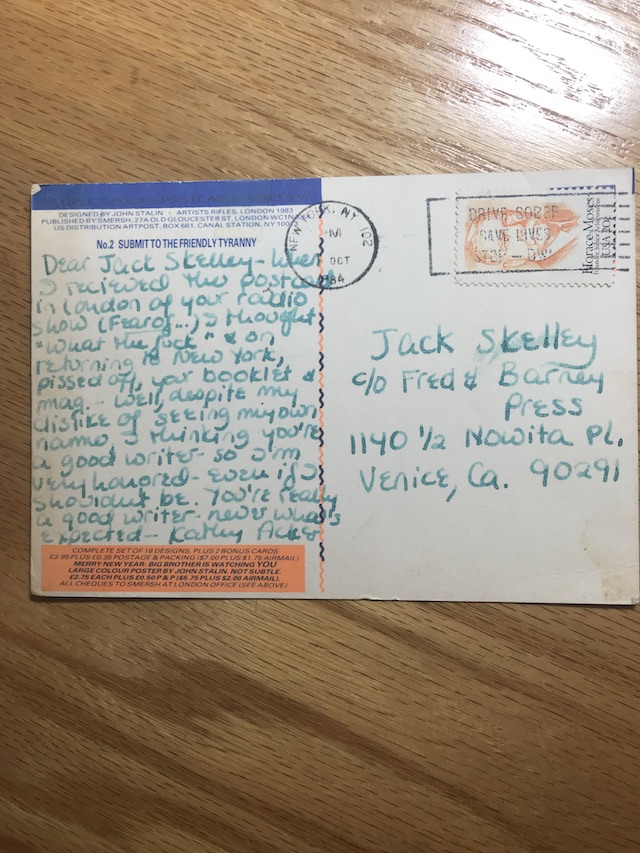 DESIGNED BY JOHN STALIN · ARTISTS RIFLES, LONDON 1983
PUBLISHED BY SMERSH, 27A OLD GLOUCESTER ST, LONDON WC1N
US DISTRIBUTION ARTPOST, BOX 661, CANAL STATION, NY 10013
No.2 SUBMIT TO THE FRIENDLY TYRANNY
Dear Jack Skelley - When
I recieved the postcard
in London of your radio
show (Fear of...) I thought
"What the fuck" & on
returning to New York,
pissed off, your booklet &
mag. - Well, despite my
dislike of seeing my own
name, I thinking you're
a good writer - so I'm
very honored - even if I
shouldn't be. You're really
a good writer - never what's
expected - Kathy Acker
COMPLETE SET OF 18 DESIGNS, PLUS 2 BONUS CARDS
£2.95 PLUS £0.35 POSTAGE & PACKING ($7.00 PLUS $1.75 AIRMAIL)
MERRY NEW YEAR. BIG BROTHER IS WATCHING YOU
LARGE COLOUR POSTER BY JOHN STALIN. NOT SUBTLE.
£2.75 EACH PLUS £0.50 P & P ($5.75 PLUS $2.00 AIRMAIL).
ALL CHEQUES TO SMERSH AT LONDON OFFICE (SEE ABOVE)
NEW YORK, NY 102
PM
OCT
1984
DRIVE SOBER
SAVE LIVES
STOP - DWI
Horace Moses
USA 20c
Jack Skelley
c/o Fred & Barney
Press
1140 1/2 Nowita Pl.
Venice, Ca. 90291